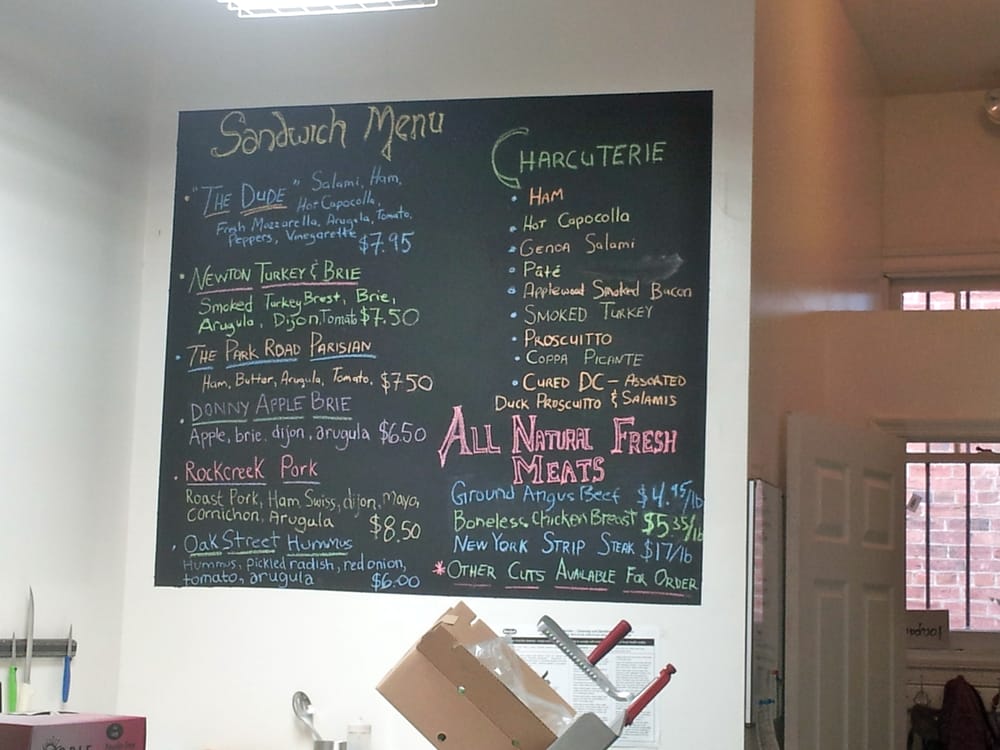 Sandwich Menu
"THE DUDE" Salami, Ham,
Hot Capocolla,
Fresh Mozzarella, Arugula, Tomato,
Peppers, Vinegarette $7.95
NEWTON TURKEY & BRIE
Smoked Turkey Brest, Brie,
Arugula, Dijon, Tomato $7.50
THE PARK ROAD PARISIAN
Ham, Butter, Arugula, Tomato, $7.50
DONNY APPLE BRIE
Apple, brie, dijon, arugula $6.50
Rockcreek Pork
Roast Pork, Ham, Swiss, dijon, Mayo,
Cornichon, Arugula $8.50
Oak Street Hummus
Hummus, pickled radish, red onion,
tomato, arugula $6.00
CHARCUTERIE
HAM
Hot Capocolla
Genoa Salami
Pâté
Applewood Smoked Bacon
SMOKED TURKEY
PROSCUITTO
COPPA PICANTE
CURED DC - ASSORTED
DUCK PROSCUITTO & SALAMIS
ALL NATURAL FRESH
MEATS
Ground Angus Beef $4.95/lb
Boneless Chicken Breast $5.35/lb
NEW YORK STRIP STEAK $17/lb
*OTHER CUTS AVAILABLE FOR ORDER